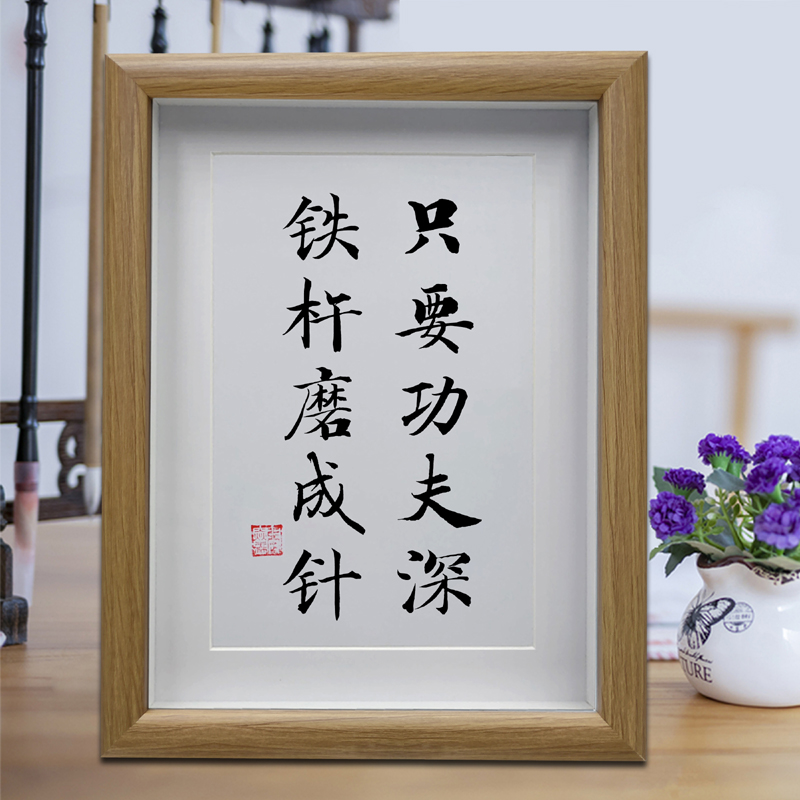 只要功夫深
铁杵磨成针